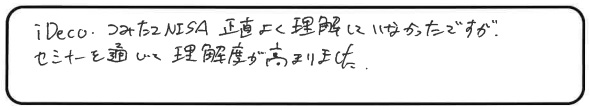 iDeco.つみたてNISA 正直よく理解していなかったですが.
セミナーを通じて理解度が高まりました.